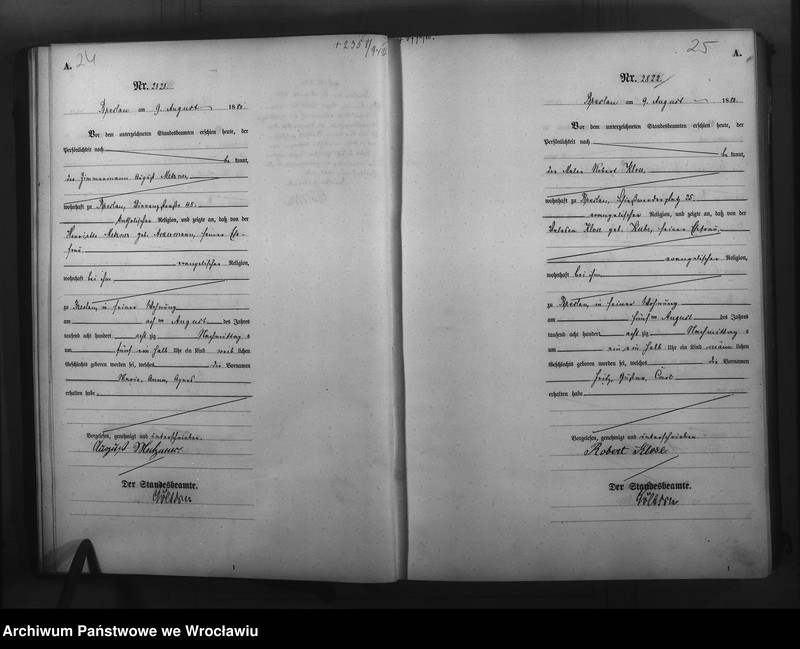 24
A.
Nr. 2821.
Breslau am 9. August 1880.
Vor dem unterzeichneten Standesbeamten erschien heute, der
Persönlichkeit nach
be kannt,
der Zimmermann August
wohnhaft zu Breslau, 45.
katholischer Religion, und zeigte an, daß von der
Henriette geb. Ackermann, seiner Ehe-
frau,
evangelischer Religion,
wohnhaft bei ihm
zu Breslau, in seiner Wohnung
am August des Jahres
tausend acht hundert achtzig Nachmittags
um fünf ein halb Uhr ein Kind weiblichen
Geschlechts geboren worden sei, welches die Vornamen
Maria, Anna, Agnes
erhalten habe.
Vorgelesen, genehmigt und unterschrieben.
August
Der Standesbeamte.
25
A.
Nr. 2822
Breslau am 9. August 1880.
Vor dem unterzeichneten Standesbeamten erschien heute, der
Persönlichkeit nach
be kannt,
der Maler Robert Klose,
wohnhaft zu Breslau, Schießwerderplatz 25.
evangelischer Religion, und zeigte an, daß von der
Klose geb. seiner Ehefrau,
evangelischer Religion,
wohnhaft bei ihm
zu Breslau, in seiner Wohnung
am fünften August des Jahres
tausend acht hundert achtzig Nachmittags
um ein ein halb Uhr ein Kind männlichen
Geschlechts geboren worden sei, welches die Vornamen
Fritz, Gustav, Carl
erhalten habe
Vorgelesen, genehmigt und unterschrieben
Robert Klose
Der Standesbeamte.
1
1
Archiwum Państwowe we Wrocławiu